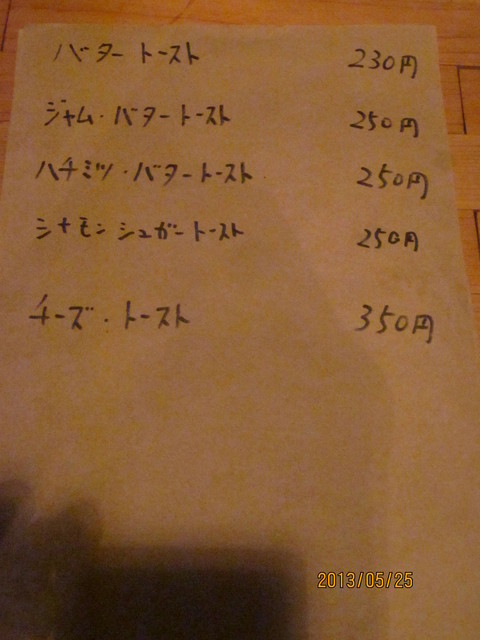 バタートースト 230円
ジャム・バタートースト 250円
ハチミツ・バタートースト 250円
シナモンシュガートースト 250円
チーズ・トースト 350円
2013/05/25